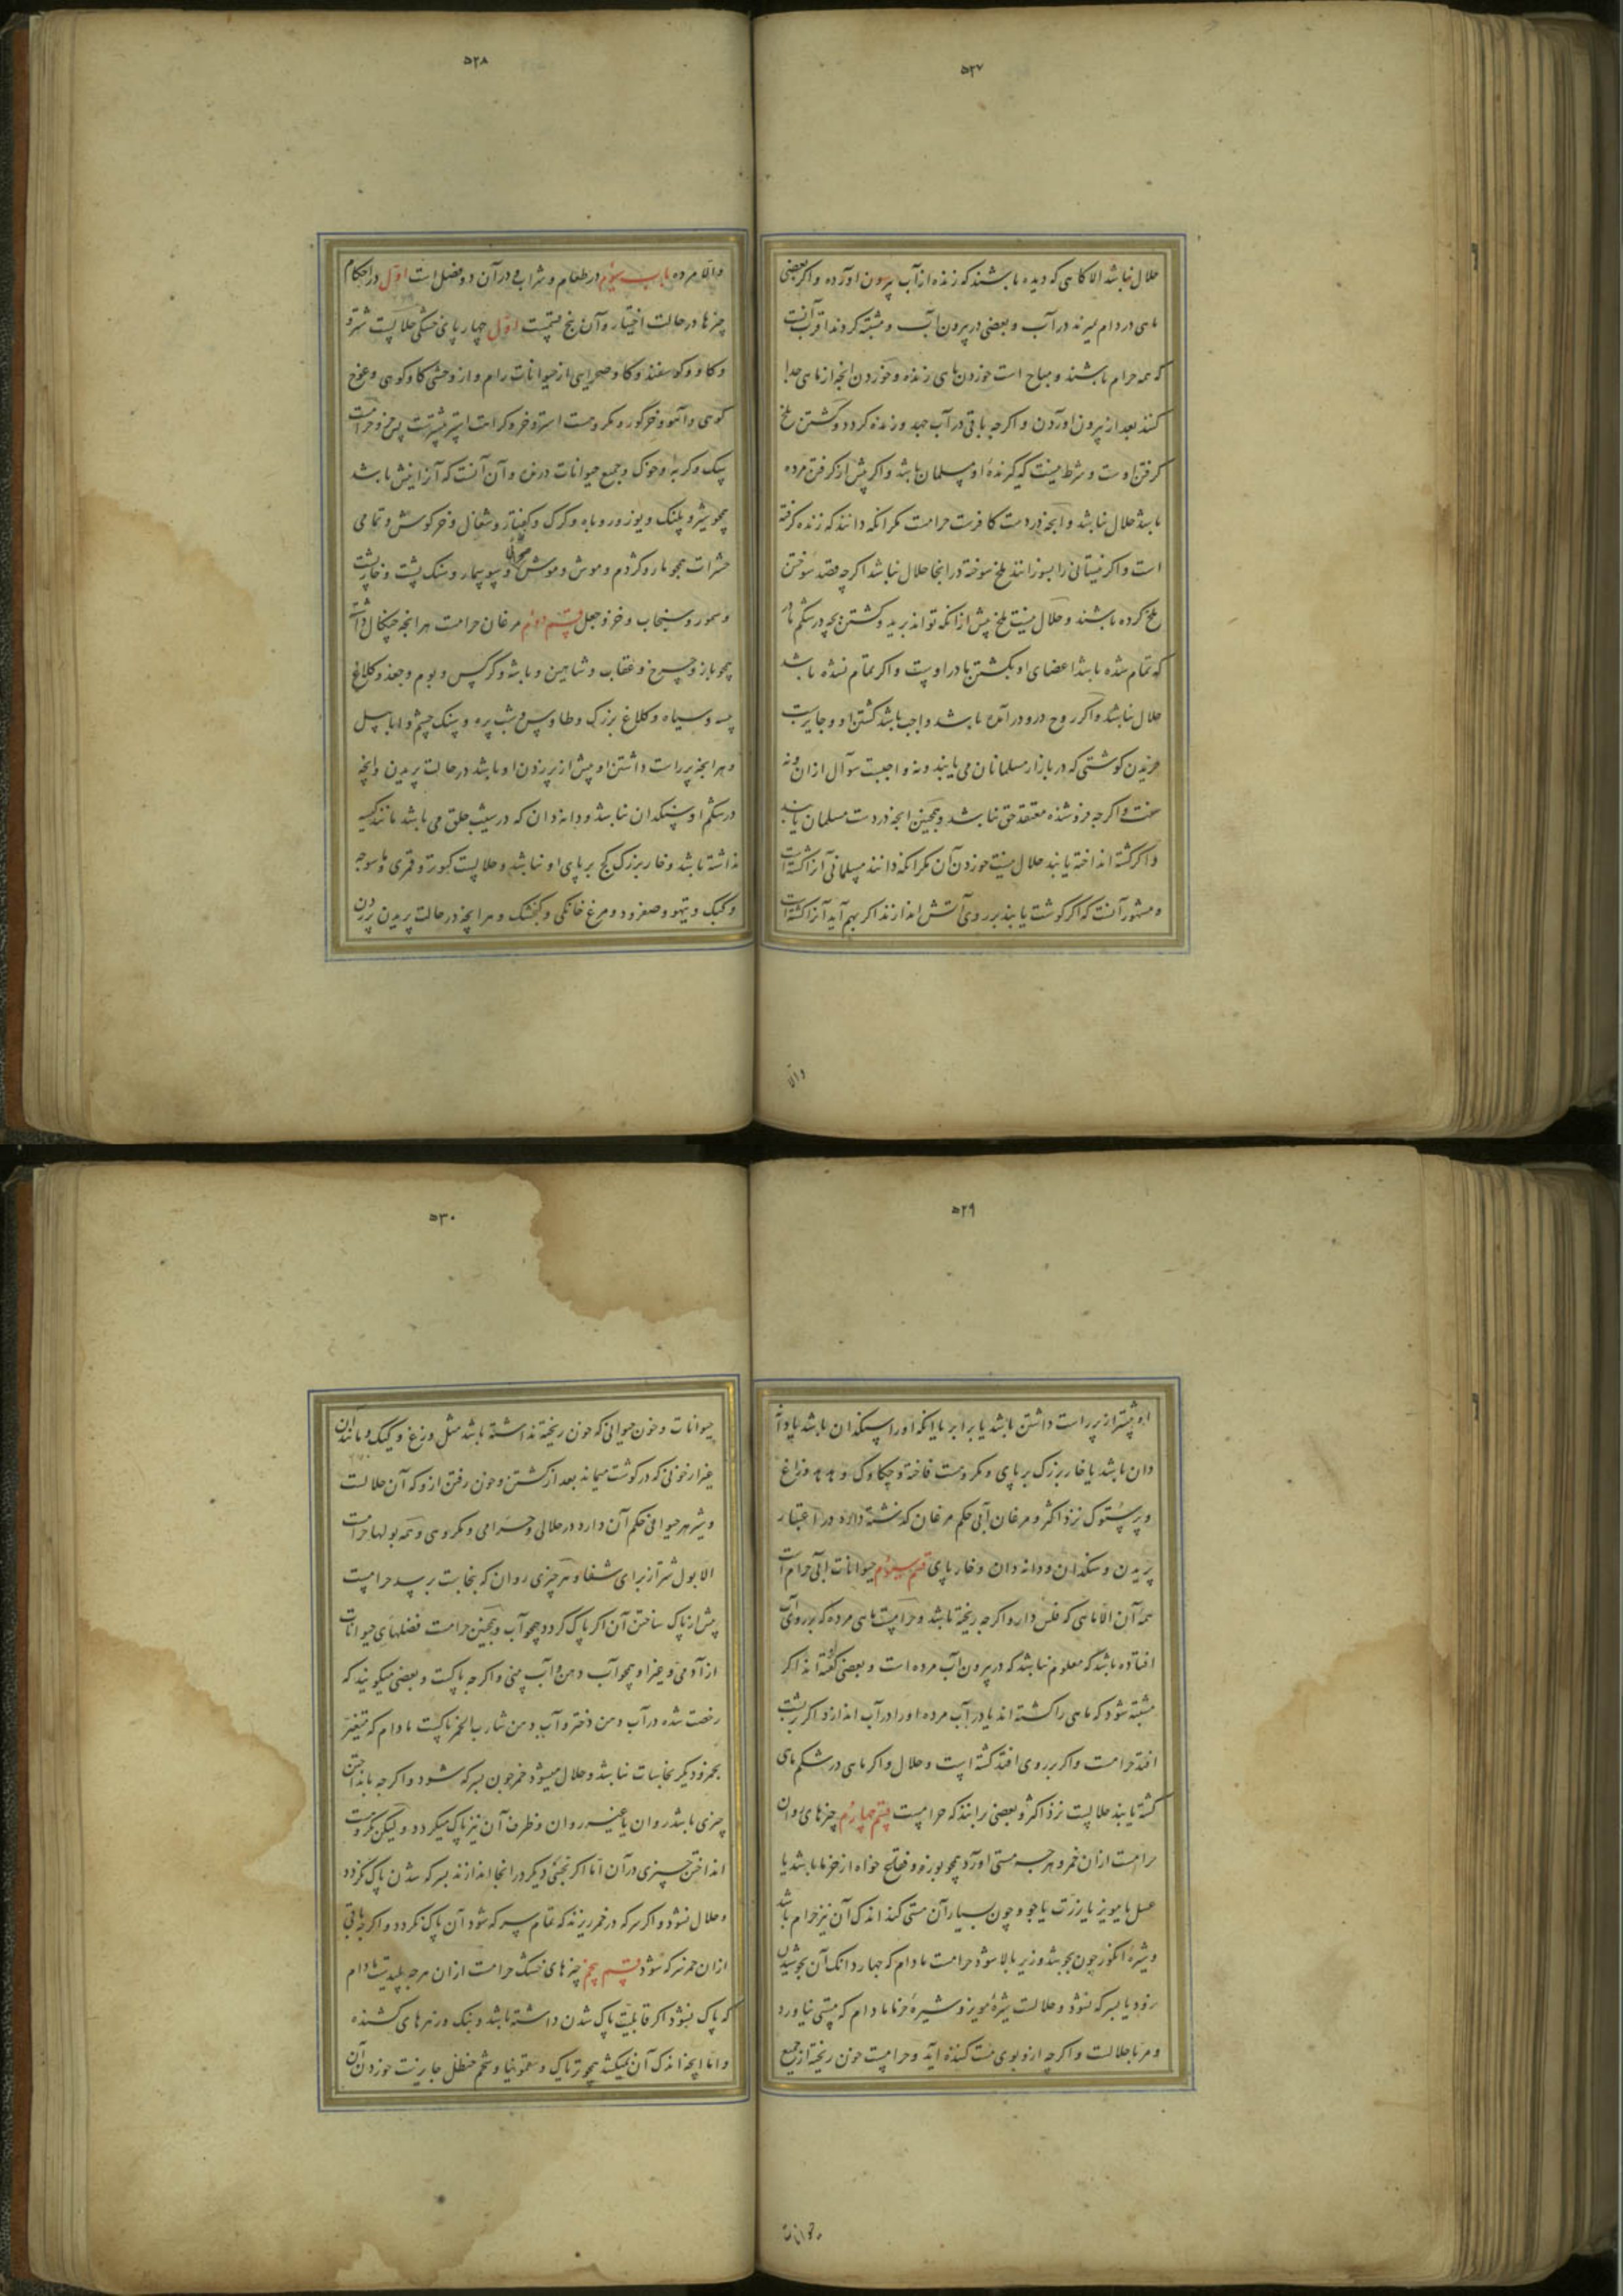 ۵۲۷
حلال نباشد الا کاهی که دیده باشند که زنده از آب بیرون اورده و اکر بعضی
ماهی در دام میرند در آب و بعضی در بیرون آب و مشتبه کردند اقرب آنست
که همه حرام باشند و مباح است خوردن ماهی زنده و خوردن انچه از ماهی جدا
کنند بعد از بیرون اوردن و اکرچه باقی در آب جهد و زنده کردد و کشتن ملخ
کرفتن اوست و شرط نیست که کیرندهٔ او مسلمان باشد و اکر پیش از کرفتن مرده
باشد حلال نباشد و آنچه در دست کافرست حرامست مکر انکه دانند که زنده کرفته
است و اکر نیستانی را بسوزانند ملخ سوخته در انجا حلال نباشد اکرچه قصد سوختن
ملخ کرده باشند و حلال نیست ملخ پیش از انکه تواند پرید و کشتن بچه در شکم مادر
که تمام شده باشد اعضای او بکشتن مادر اوست و اکر تمام نشده باشد
حلال نباشد و اکر روح درو در آمده باشد واجب باشد کشتن او و جایزست
خریدن کوشتی که در بازار مسلمانان می یابند و نه واجبست سوآل ازان و نه
سنت و اکرچه فروشنده معتقد حق نباشد و همچنین انچه در دست مسلمان یابند
و اکر کشته انداخته یابند حلال نیست خوردن آن مکر انکه دانند مسلمانی آنرا کشته است
و مشهور آنست که اکر کوشت یابند بر روی آتش اندازند اکر بهم آید آنرا کشته است
والا
۵۲۸
والا مرده باب سیوم در طعام و شراب و در آن دو فصل است اول در احکام
چیزها در حالت اختیار و آن پنج قسمست اول چهار پای خشکی حلالست شتر و
و کاو و کوسفند و کاو صحرایی از حیوانات رام و از وحشی کاو کوهی و غوج
کوهی و آهو و خرکور و مکروهست استر و خر و کراهت استر بیشترست پس خر و حرامست
سک و کربه و خوک و جمیع حیوانات درنده و آن آنست که آنرا نیش باشد
همچو شیر و پلنک و یوز و روباه و کرک و کفتار و شغال و خرکوش و تمامی
حشرات همچو مار و کژدم و موش و موش صحرائی و سوسمار و سنک پشت و خارپشت
و سمور و سنجاب و خز و جعل قسم دوم مرغان حرامست هر انچه چنکال داشته
همچو باز و چرخ و عقاب و شاهین و باشه و کرکس و بوم و جغد و کلاغ
پیسه و سیاه و کلاغ بزرک و طاوس و شب پره و سنک چشم و ابابیل
و هر انچه پر راست داشتن او بیش از پر زدن او باشد در حالت پریدن و انچه
در شکم او سنکدان نباشد و دانه دان که در شیب حلق می باشد مانند کیسه
نداشته باشد و خار بزرک کج بر پای او نباشد و حلالست کبوتر و قمری و ماسوچه
و کبک و تیهو و صعرود و مرغ خانکی و کنجشک و هر انچه در حالت پریدن پر زدن
۵۲۹
او بیشتر از پر راست داشتن باشد یا برابر یا انکه او را سنکدان باشد یا دانه
دان باشد یا خار بزرک بر پای و مکروهست فاخته و چکاوک و هدهد و زاغ
و پرستوک نزد اکثر و مرغان آبی حکم مرغان کذشته دارد در اعتبار
پریدن و سنکدان و دانه دان و خار پای قسم سیوم حیوانات ابی حرام است
همهٔ آن الا ماهی که فلس دارد و اکرچه ریخته باشد و حرامست ماهی مرده که بر روی آب
افتاده باشد که معلوم نباشد که در بیرون آب مرده است و بعضی کفته اند اکر
مشتبه شود که ماهی را کشته اند یا در آب مرده او را در آب اندازند اکر بر پشت
افتد حرامست و اکر بر روی افتد کشته است و حلال و اکر ماهی در شکم ماهی
کشته یابند حلالست نزد اکثر و بعضی برانند که حرامست قسم چهارم چیزهای روان
حرامست ازان خمر و هر چه مستی اورد همچو بوزه و فقاع خواه از خرما باشد یا
عسل یا مویز یا ذرت یا جو و چون بسیار آن مستی کند اندک آن نیز حرام باشد
و شیرهٔ انکور چون بجوشد و زیر بالا شود حرامست مادام که چهار دانک آن بجوشیدن
رود یا سرکه نشود و حلالست شیرهٔ مویز و شیرهٔ خرما مادام که مستی نیاورد
و مربا حلالست و اکرچه ازو بوی مست کننده آید و حرامست خون ریخته از جمیع
۵۳۰
حیوانات و خون حیوانی که خون ریخته نداشته باشد مثل وزغ و کیک و مانند آن
غیر از خونی که در کوشت میماند بعد از کشتن و خون رفتن ازو که آن حلالست
و شیر هر حیوانی حکم آن دارد در حلالی و حرامی و مکروهی و همه بولها حرامست
الا بول شتر از برای شفا و هر چیزی روان که نجاست برسد حرامست
پیش از پاک ساختن آن اکر پاک کردد همچو آب و همچنین حرامست فضلهای حیوانات
از آدمی و غیر او همچو آب دهن و آب بینی و اکرچه پاکست و بعضی میکویند که
رخصت شده در آب دهن دختر و آب دهن شارب الخمر پاکست مادام که متغیر
بخمر و دیکر نجاسات نباشد و حلال میشود خمر چون سرکه شود و اکرچه بانداختن
چیزی باشد روان یا غیر روان و ظرف آن نیز پاک میکردد ولیکن مکروهست
انداختن چیزی در آن اما اکر نجسی دیکر در انجا اندازند بسرکه شدن پاک نکردد
و حلال نشود و اکر سرکه در خمر ریزند که تمام سرکه شود آن پاک نکردد و اکرچه باقی
ازان خمر سرکه شود قسم پنجم چیزهای خشک حرامست ازان هرچه پلیدست مادام
که پاک نشود اکر قابلیت پاک شدن داشته باشد و بنک و زهرهای کشنده
و اما انچه اندک آن نمیکشد همچو تریاک و سقمونیا و شحم حنظل جایزست خوردن آن